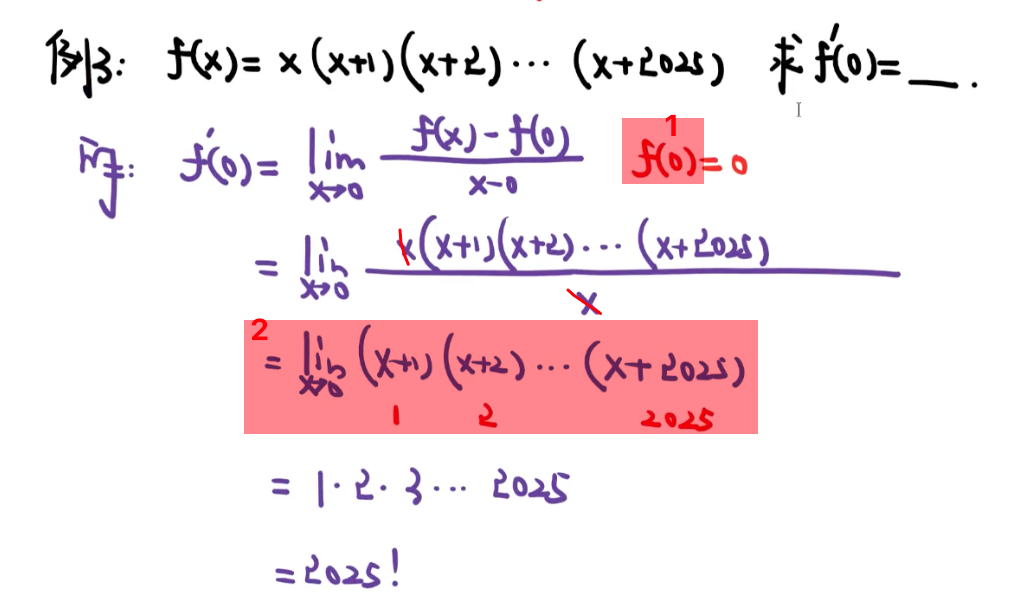 例3: f(x)= x(x+1)(x+2)⋯(x+2025) 求f'(0)=__.
解: f'(0)= lim x→0 (f(x)-f(0))/(x-0) 1 f(0)=0
= lim x→0 x(x+1)(x+2)⋯(x+2025)/x
2 = lim x→0 (x+1)(x+2)⋯(x+2025)
1 2 2025
= 1·2·3⋯2025
=2025!